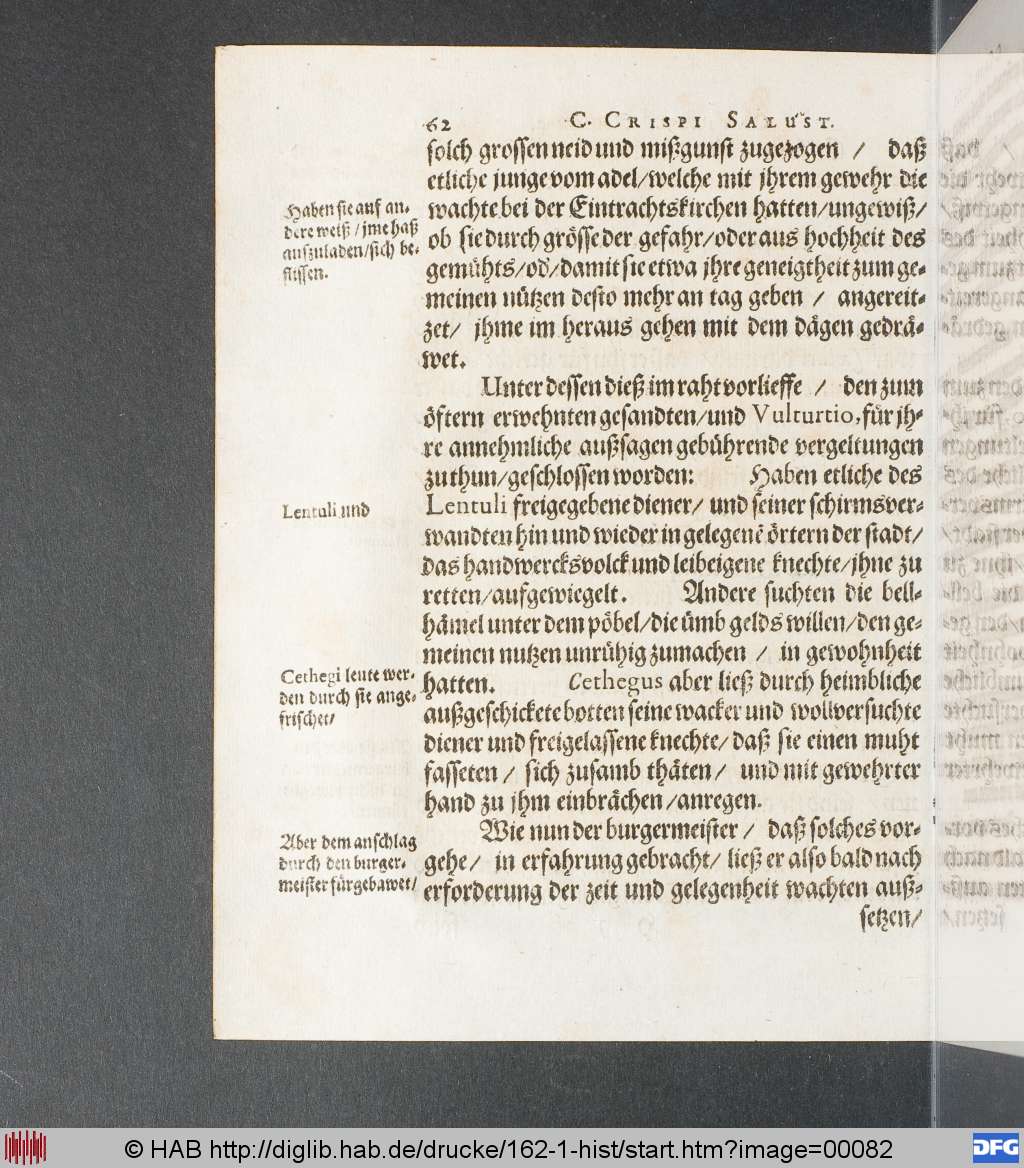 62 C. CRISPI SALUST.
solch grossen neid und mißgunst zugezogen / daß
etliche junge vom adel/welche mit jhrem gewehr die
wachte bei der Eintrachtskirchen hatten/ungewiß/
ob sie durch grösse der gefahr/oder aus hochheit des
gemühts/od/damit sie etwa jhre geneigtheit zum ge-
meinen nützen desto mehr an tag geben / angereit-
zet/ jhme im heraus gehen mit dem dägen gedrä-
wet.
Haben sie auf an-
dere weiß / jme haß
aufzuladen/sich be-
flissen.
Unter dessen dieß im raht vorlieffe / den zum
öftern erwehnten gesandten/und Vulturtio, für jh-
re annehmliche außsagen gebührende vergeltungen
zu thun/geschlossen worden: Haben etliche des
Lentuli freigegebene diener/ und seiner schirmsver-
wandten hin und wieder in gelegenē örtern der stadt/
das handwercksvolck und leibeigene knechte/jhne zu
retten/aufgewiegelt. Andere suchten die bell-
hämel unter dem pöbel/die ümb gelds willen/den ge-
meinen nutzen unrühig zumachen / in gewohnheit
hatten. Cethegus aber ließ durch heimbliche
außgeschickete botten seine wacker und wollversuchte
diener und freigelassene knechte/ daß sie einen muht
fasseten / sich zusamb thäten / und mit gewehrter
hand zu jhm einbrächen/anregen.
Lentuli und
Cethegi leute wer-
den durch sie ange-
frischet/
Wie nun der burgermeister / daß solches vor-
gehe/ in erfahrung gebracht/ ließ er also bald nach
erforderung der zeit und gelegenheit wachten auß-
setzen/
Aber dem anschlag
durch den burger-
meister fürgebawet/
© HAB http://diglib.hab.de/drucke/162-1-hist/start.htm?image=00082
DFG